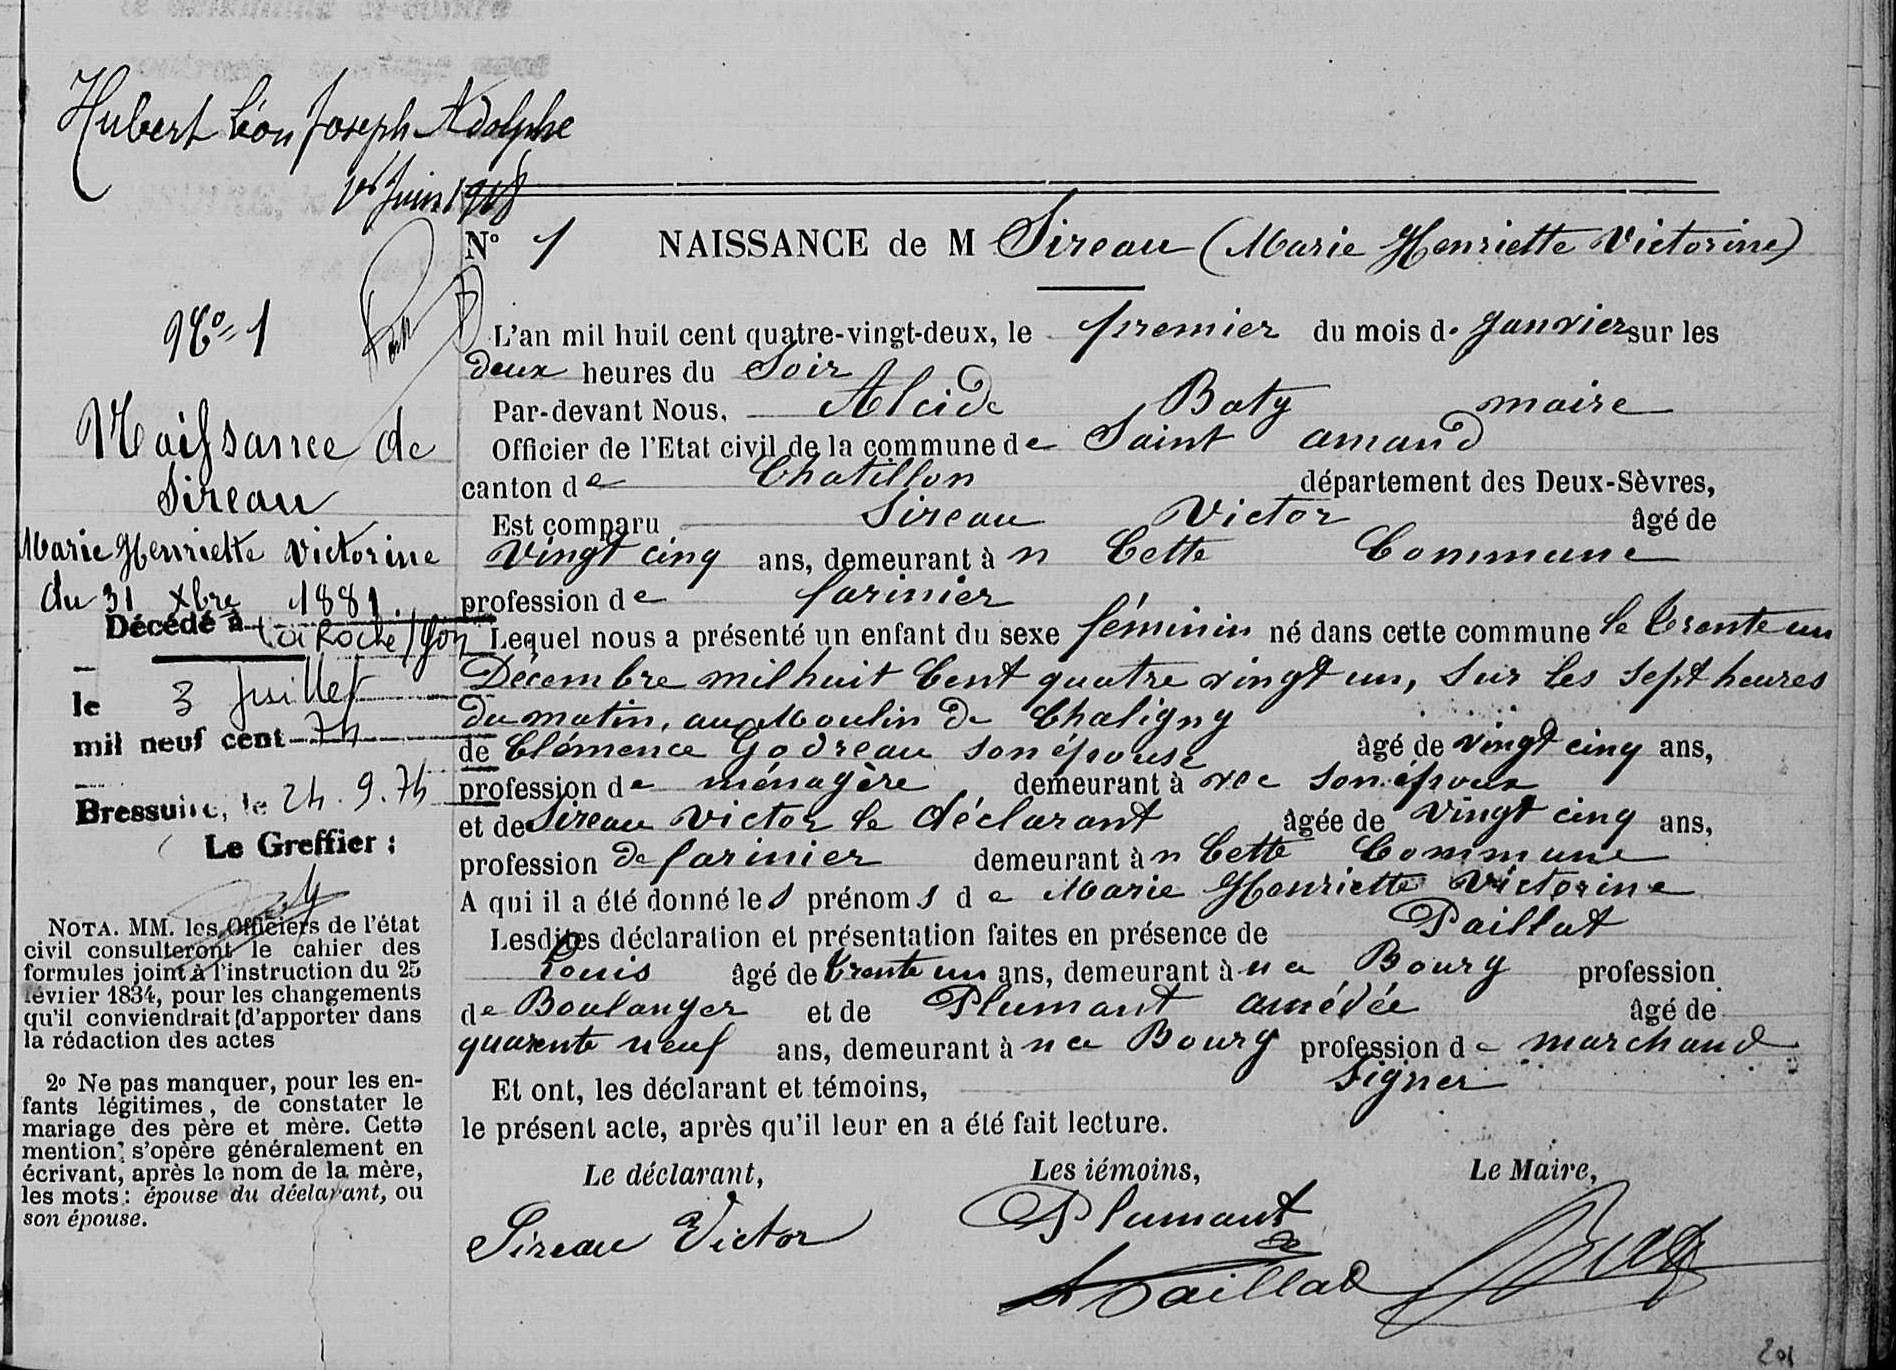 Hubert Léon Joseph Adolphe
1er Juin 1918
N° 1 NAISSANCE de M Sireau (Marie Henriette Victorine)
No 1
Naissance de
Sireau
Marie Henriette Victorine
du 31 Xbre 1881.
Décédé à La Roche/Yon
le 3 Juillet
mil neuf cent 74
Bressuire, le 24.9.74
Le Greffier :
NOTA. MM. les Officiers de l'état
civil consulteront le cahier des
formules joint à l'instruction du 25
février 1834, pour les changements
qu'il conviendrait d'apporter dans
la rédaction des actes
2° Ne pas manquer, pour les en-
fants légitimes, de constater le
mariage des père et mère. Cette
mention s'opère généralement en
écrivant, après le nom de la mère,
les mots : épouse du déclarant, ou
son épouse.
L'an mil huit cent quatre-vingt-deux, le premier du mois de Janvier sur les
deux heures du Soir
Par-devant Nous, Alcide Baty maire
Officier de l'Etat civil de la commune de Saint amand
canton de Chatillon département des Deux-Sèvres,
Est comparu Sireau Victor âgé de
Vingt cinq ans, demeurant à n Cette Commune
profession de farinier
Lequel nous a présenté un enfant du sexe féminin né dans cette commune le trente un
Décembre mil huit Cent quatre vingt un, Sur les sept heures
du matin, au Moulin de Chaligny
de Clémence Godreau son épouse âgé de vingt cinq ans,
profession de ménagère demeurant à vec son époux
et de Sireau Victor le déclarant âgée de Vingt cinq ans,
profession de farinier demeurant à n Cette Commune
A qui il a été donné les prénoms de Marie Henriette Victorine
Lesdites déclaration et présentation faites en présence de Paillat
Louis âgé de trente un ans, demeurant à u ce Bourg profession
de Boulanger et de Plumant amédée âgé de
quarente neuf ans, demeurant à u ce Bourg profession de marchand
Et ont, les déclarant et témoins, Signer
le présent acte, après qu'il leur en a été fait lecture.
Le déclarant, Les témoins, Le Maire,
Sireau Victor Plumant
Paillat Baty
201